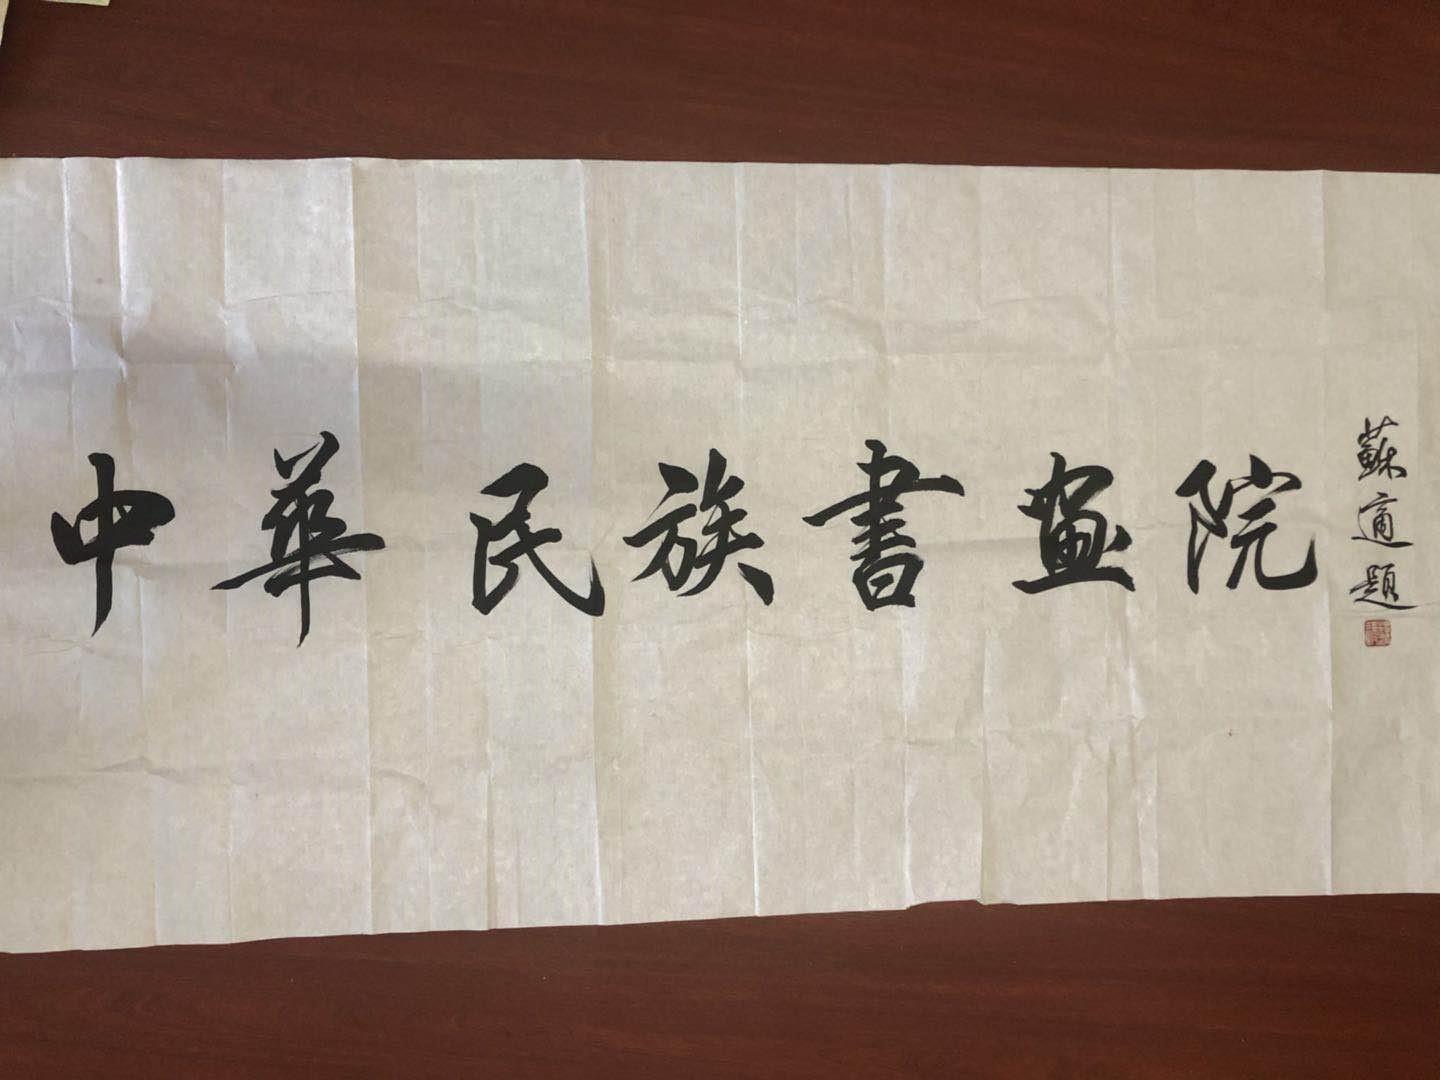 中華民族書画院
蘇適題